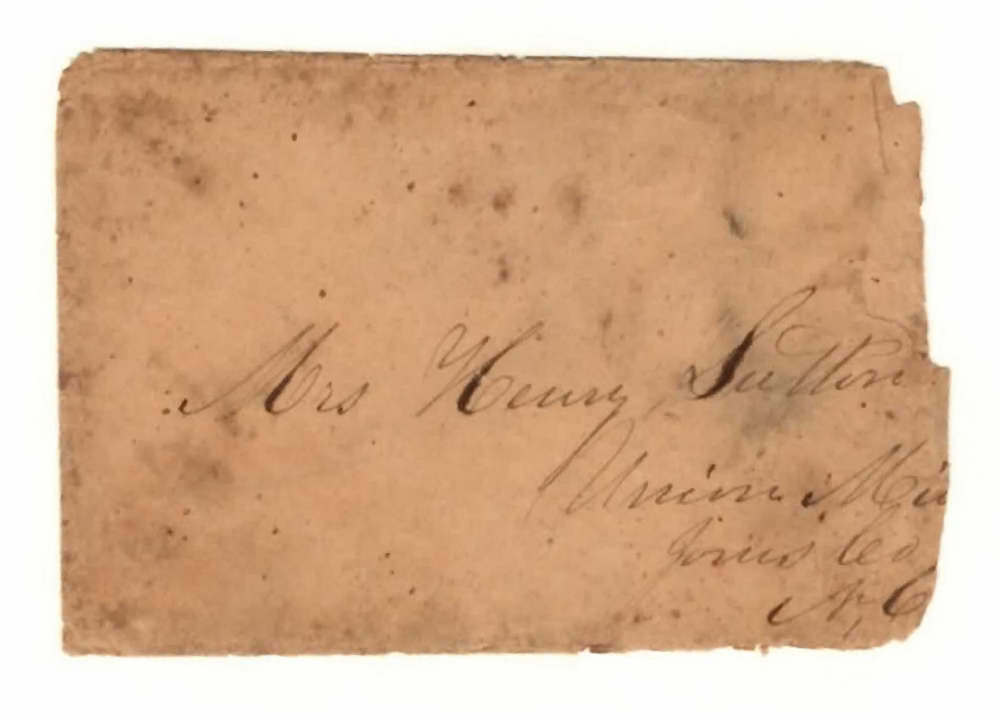 Mrs Henry Sutton
Union
Jones Co
N, C